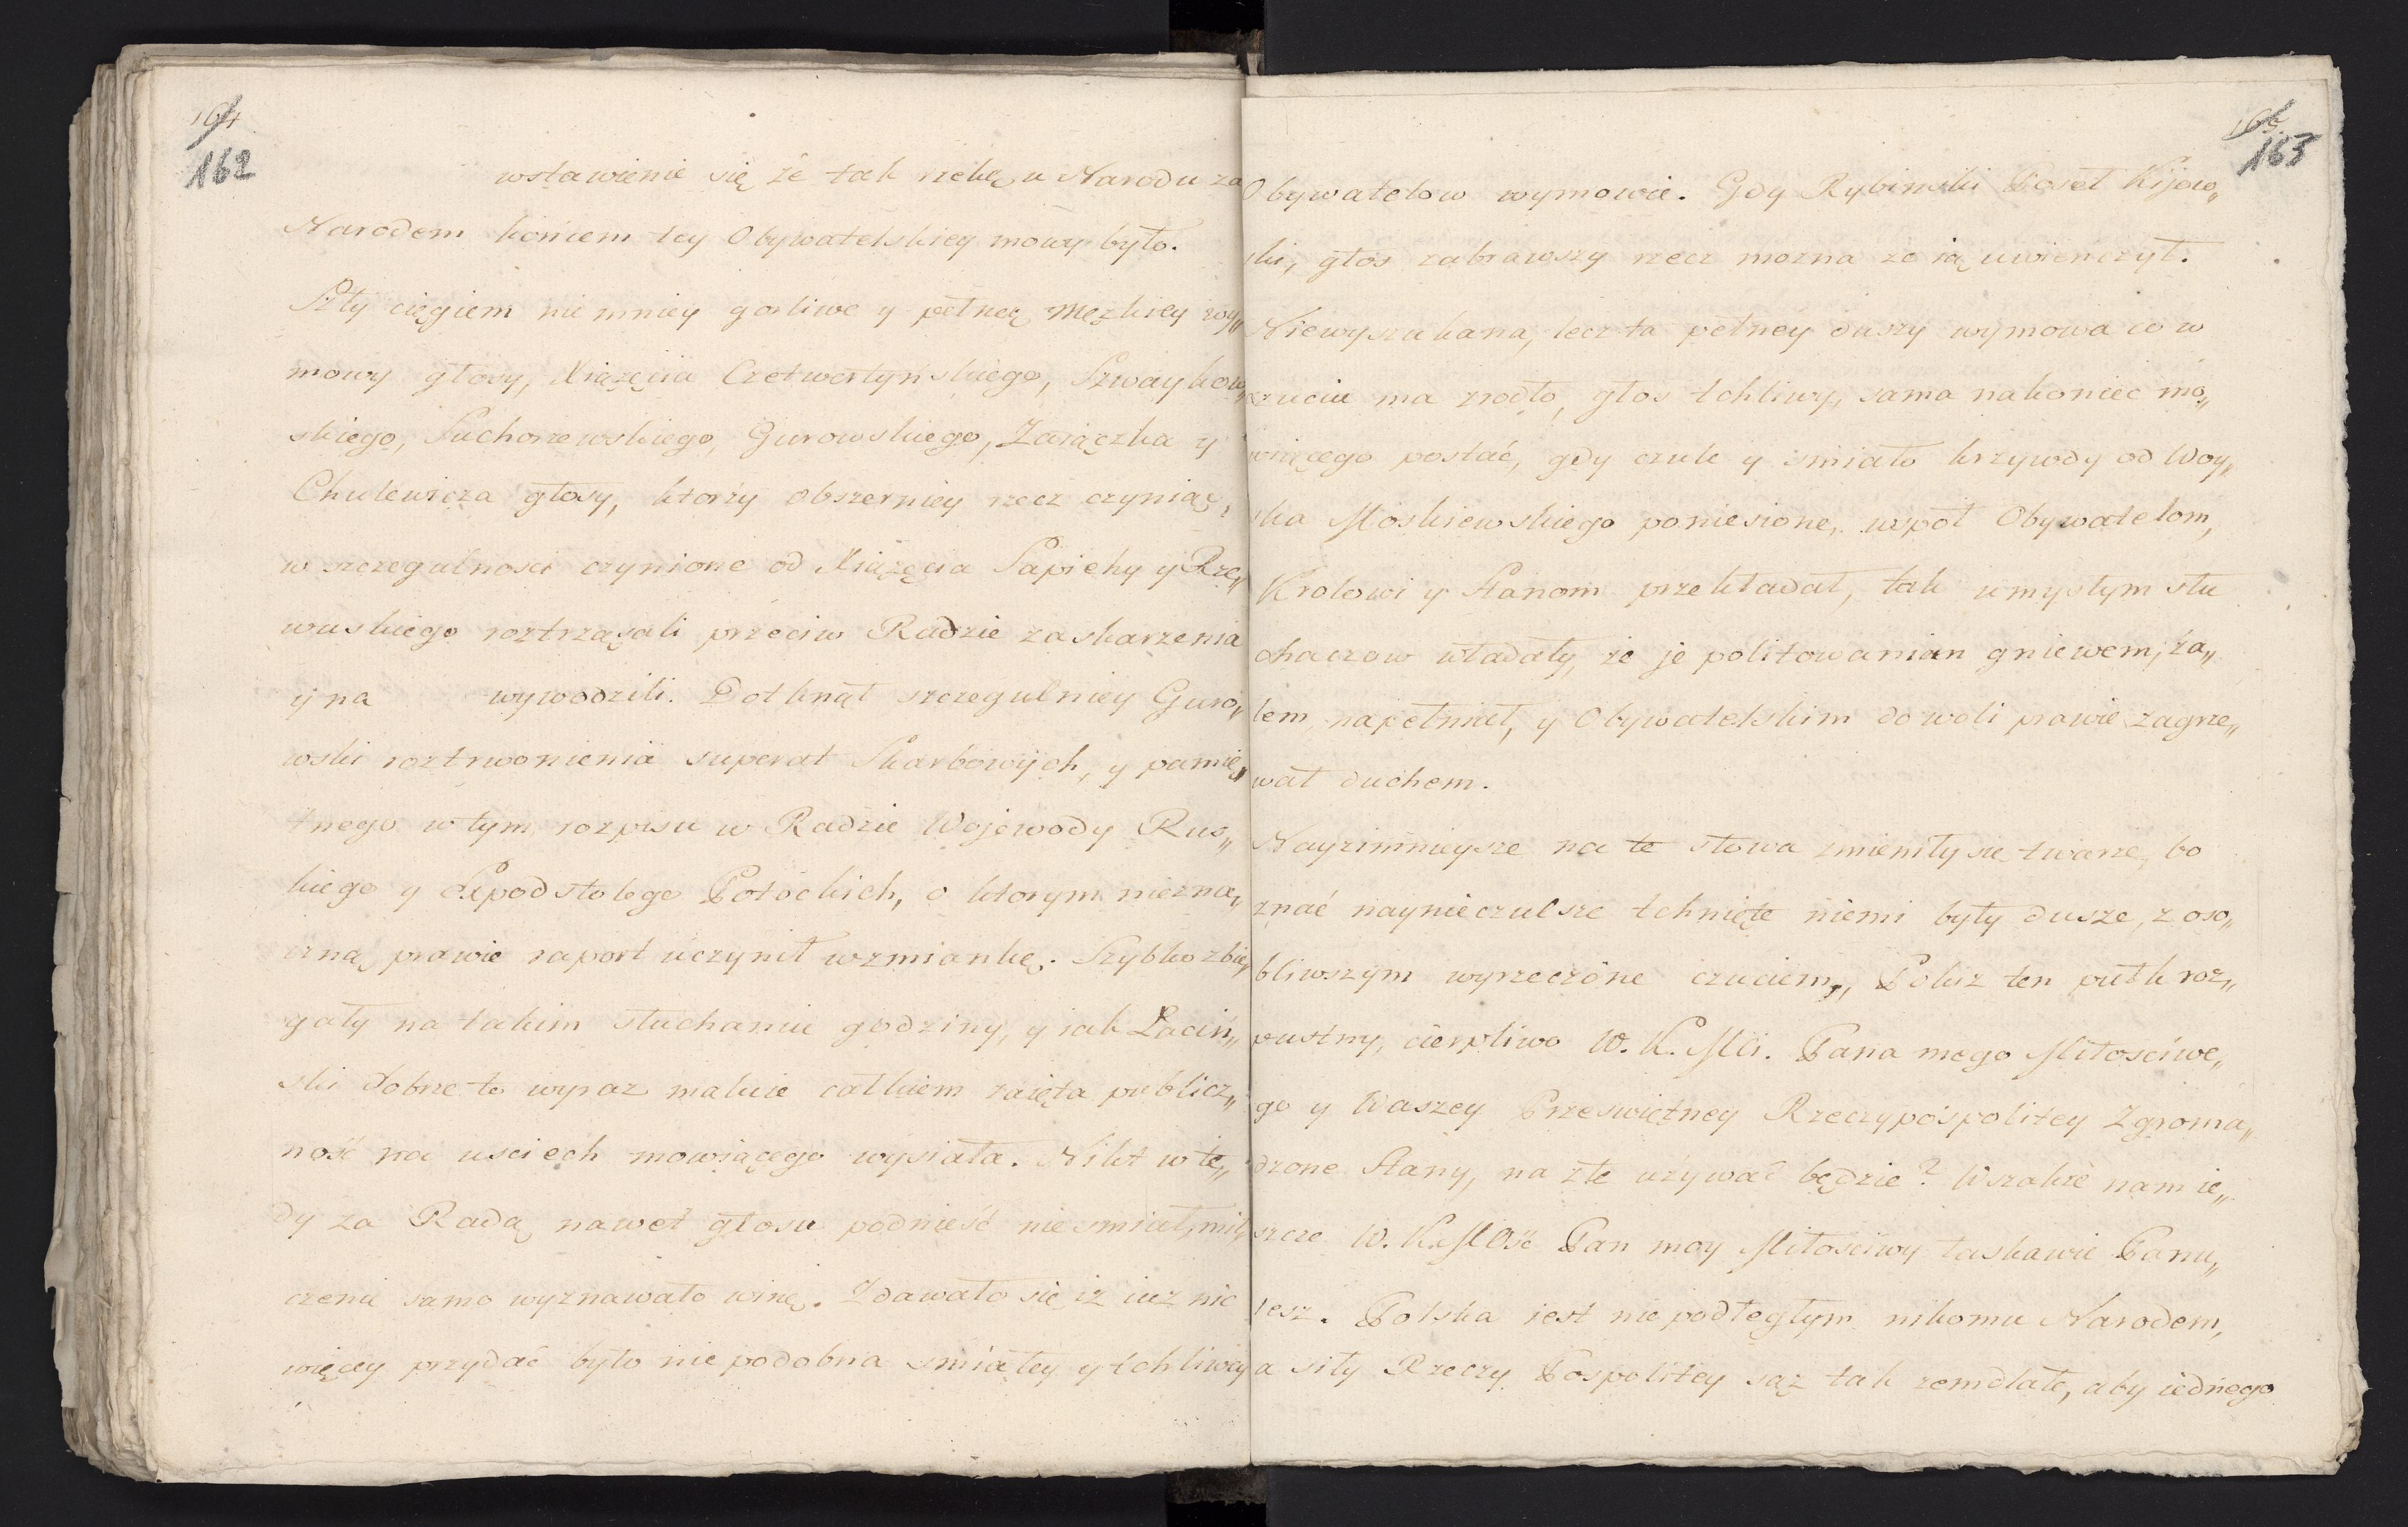 164
162
wstawienie się że tak rzekę u Narodu za
Narodem końcem tey Obywatelskiey mowy było.
Szły ciągiem nie mniey gorliwe y pełney męzkiey wy„
mowy głosy, Xiążęcia Czetwertyńskiego, Szwaykow„
skiego, Suchorzewskiego, Gurowskiego, Zaiączka y
Chulewicza głosy, ktorzy obszerniey rzecz czyniąc,
w szczegulnosci czynione od Xiążęcia Sapiehy y Rze„
wuskiego roztrząsali przeciw Radzie zaskarzenia
y na wywodzili. Dotknął szczegulniey Guro„
wski roztrwonienia superat Skarbowych, y pamię„
tnego w tym rozpisu w Radzie Wojewody Rus„
kiego y Expodstolego Potockich, o ktorym niezna„
czną prawie raport uczynił wzmiankę. Szybko zbie„
gały na takim słuchaniu godziny, y iak Laciń„
ski dobrze to wyraz maluie całkiem zaięta publicz„
ność na usciech mowiącego wysiała. Nikt w te„
dy za Radą nawet głosu podnieść nie smiał, mil„
czenie samo wyznawało winę. Zdawało się iż iuz nic
więcey przydać było nie podobna smiałey y tchliwey
165
163
Obywatelow wymowie. Gdy Rybinski Poseł Kijow„
ski, głos zabrawszy rzecz mozna ze ią uwienczył.
Niewyszukana, lecz ta pełney duszy wymowa co w
czuciu ma zrodło, głos tchliwy, sama nakoniec mo„
wiącego postać, gdy czule y smiało krzywdy od Woy„
ska Moskiewskiego poniesione, wspoł Obywatelom,
Krolowi y Stanom przekładał, tak umysłym słu
chaczow władały, że je politowaniem gniewem, ża„
lem napełniał, y Obywatelskim do woli prawie zagrze„
wał duchem.
Nayzimnieysze na te słowa zmieniły się twarze, bo
znać naynieczulsze tchnięte niemi były dusze, z oso„
bliwszym wyrzeczone czuciem, „ Pokiz ten pułk roz„
pustny, cierpliwo W. K. Mci. Pana mego Miłosciwe„
go y Waszey Przeswiętney Rzeczypospolitey Zgroma„
dzone Stany, na złe uzywać będzie? Wszakże nam ie„
szcze W. K. Mość Pan moy Miłosciwy łaskawie Panu„
iesz. Polska iest nie podległym nikomu Narodem,
a siły Rzeczy Pospolitey sąz tak zemdlałe, aby iednego